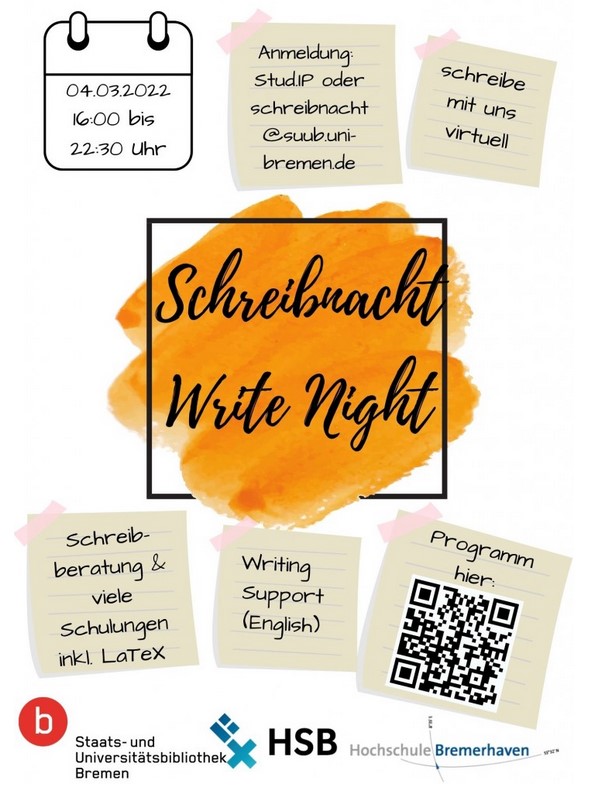 04.03.2022
16:00 bis
22:30 Uhr
Anmeldung:
Stud.IP oder
schreibnacht
@suub.uni-
bremen.de
schreibe
mit uns
virtuell
Schreibnacht
Write Night
Schreib-
beratung &
viele
Schulungen
inkl. LaTeX
Writing
Support
(English)
Programm
hier:
b
Staats- und
Universitätsbibliothek
Bremen
HSB
Hochschule Bremerhaven